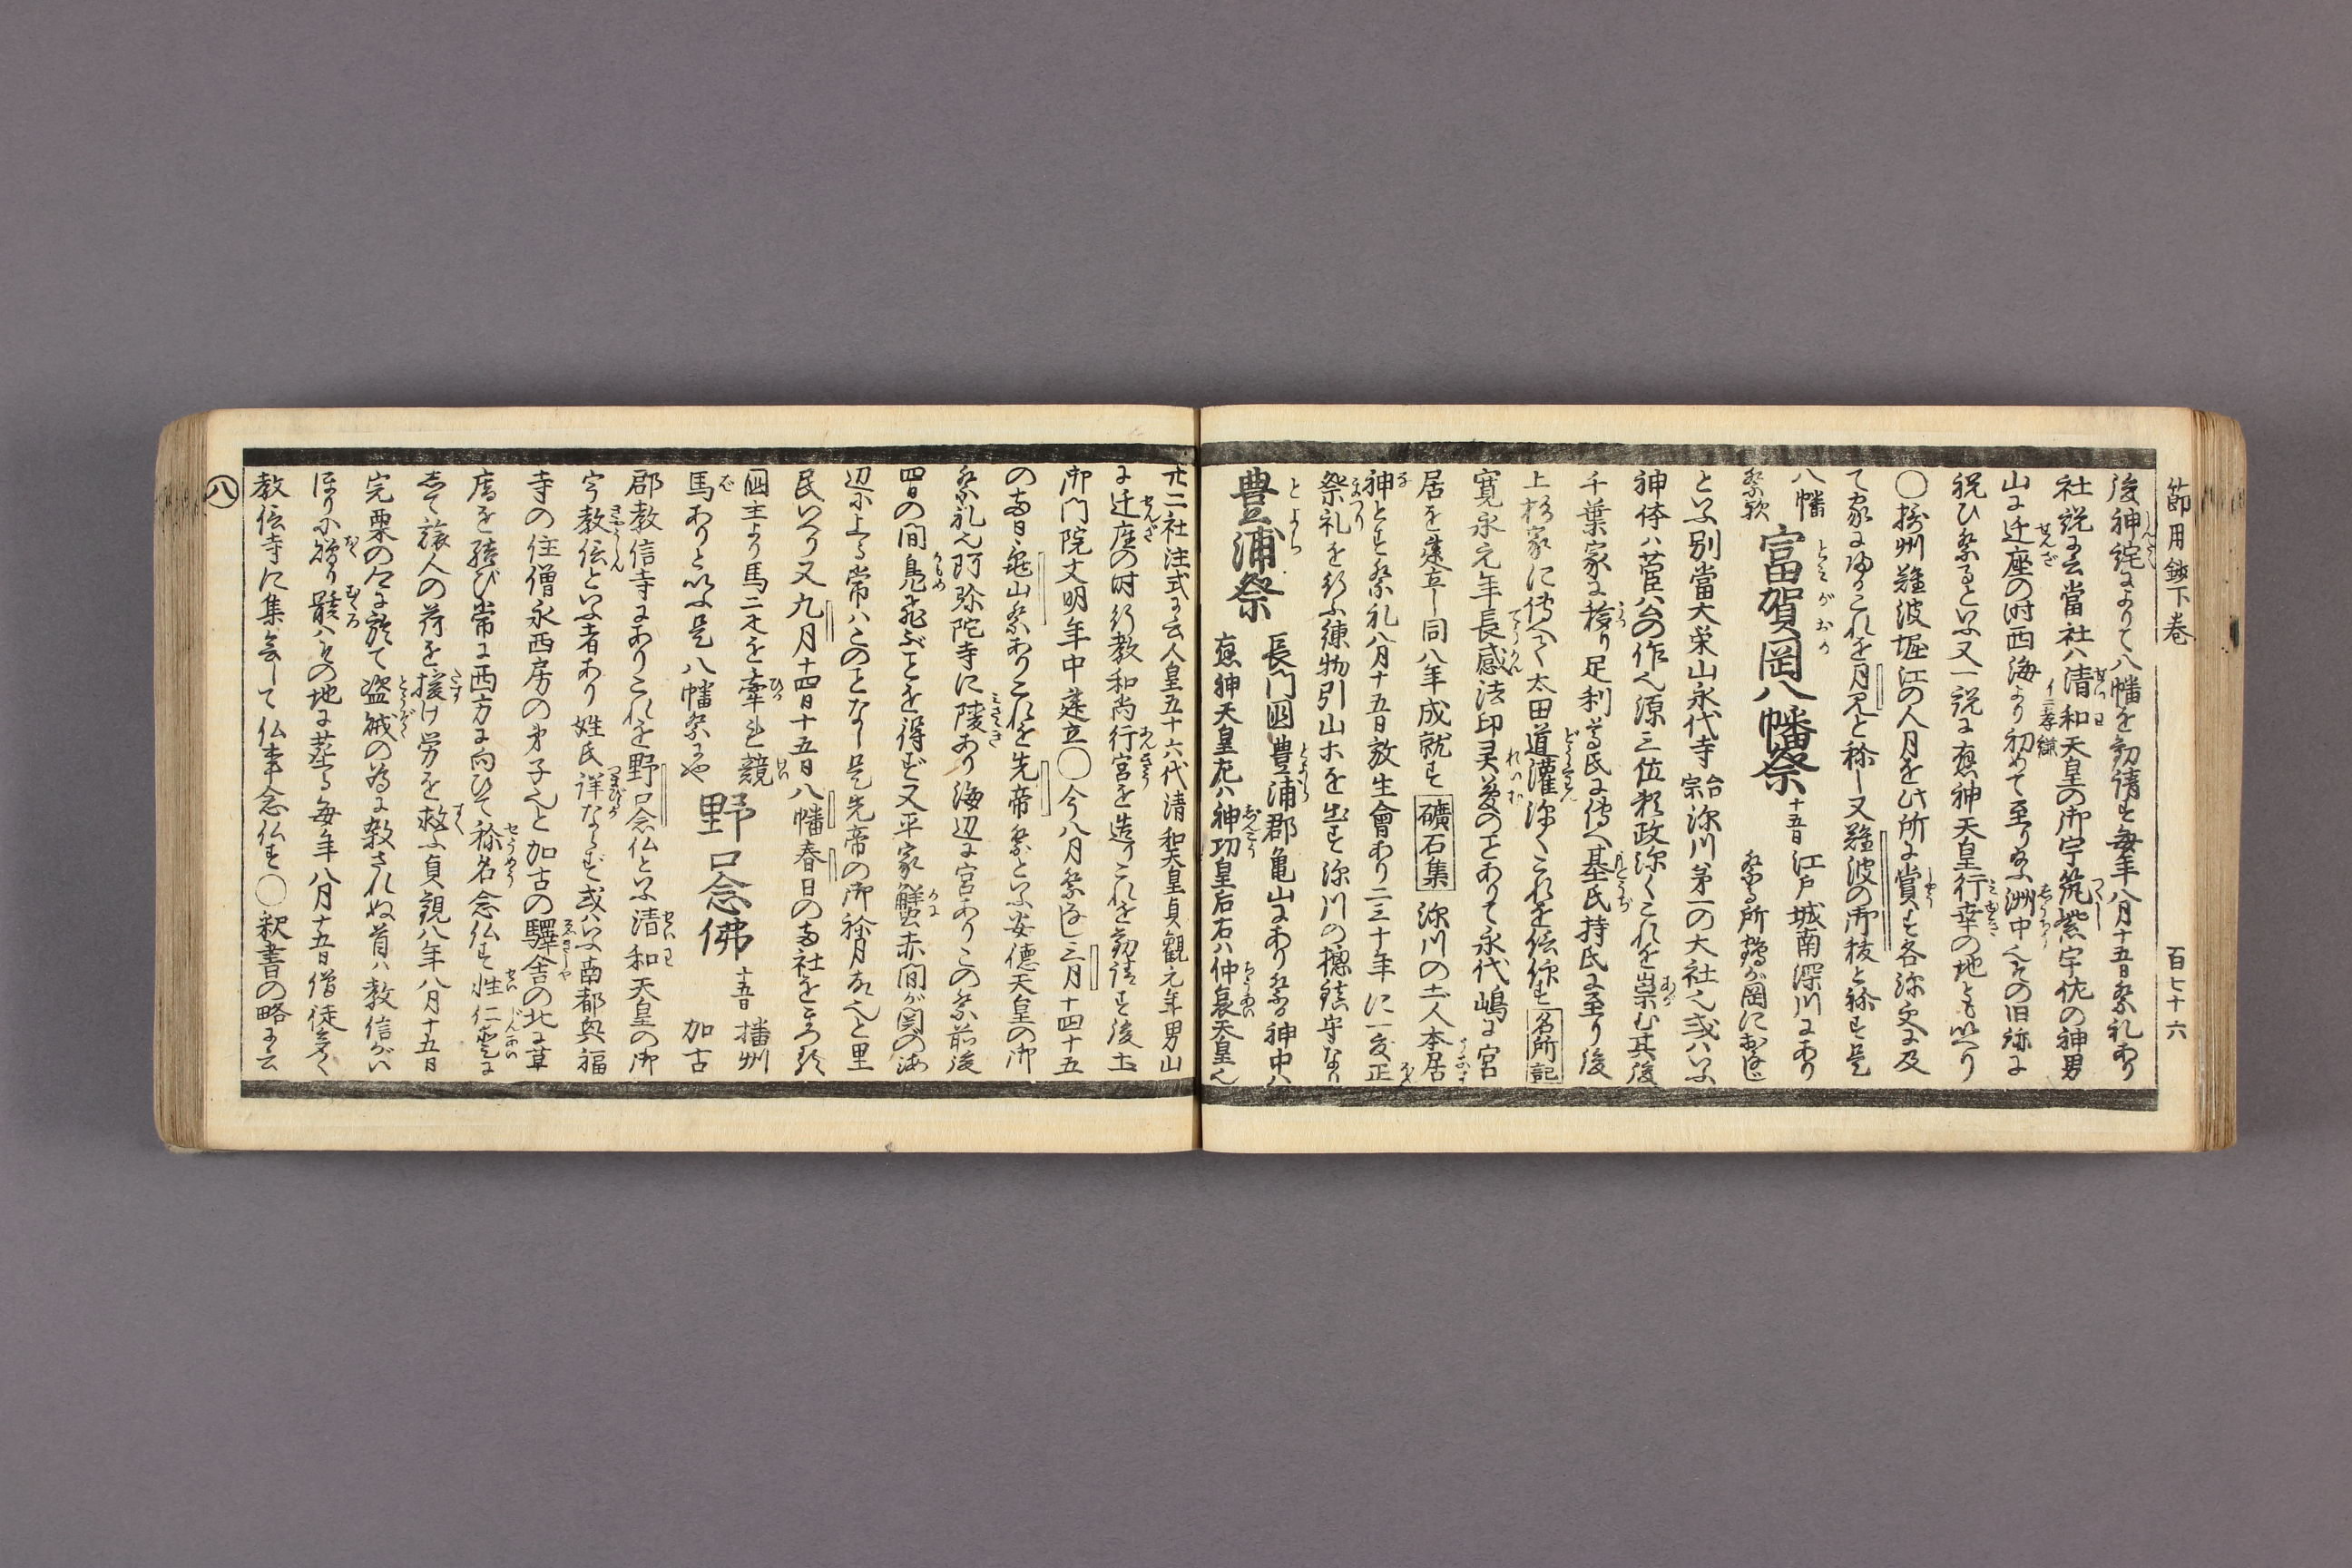 節用鈔下巻
百七十六
後神詫によりて八幡を勧請す毎年八月十五日祭礼あり
社説に云當社ハ清和天皇の御宇筑紫宇佐の神男
山に迁座の时西海より初めて至り給ふ洲中へその旧跡に
祝ひ祭るといふ又一説に應神天皇行幸の地とも以へり
〇摂州難波堀江の人月を此所に賞す各深更に及
て家に帰るこれを月見と称し又難波の御祓と称す是
八幡
祭歟
富賀岡八幡祭
とミがおか
十五日
江戸城南深川にあり
祭る所鶴が岡におなじ
といふ別當大栄山永代寺
深川第一の大社也或ハいふ
神体ハ菅公の作也源三位頼政深くこれを崇む其後
千葉家に移り足利尊氏に傳へ基氏持氏に至り後
上杉家に傳へて太田道灌深くこれを信仰す名所記
寛永元年長感法印灵夢のことありて永代嶋に宮
居を建立し同八年成就す礦石集深川の土人本居
神とす祭礼八月十五日放生會あり二三十年に一度正
祭礼を行ふ練物引山ホを出す深川の惣鎮守なり
豊浦祭
とよら
長門國豊浦郡亀山にあり祭る神中ハ
應神天皇左ハ神功皇后右ハ仲哀天皇也
廿二社注式に云人皇五十六代清和天皇貞観元年男山
に迁座の时行教和尚行宮を造りこれを勧請す後土
御門院文明年中建立〇今八月祭なし三月十四十五
の両日亀山祭ありこれを先帝祭といふ安徳天皇の御
祭礼也阿弥陀寺に陵あり海辺に宮ありこの祭前後
四日の间鳧飛ぶことを得ず又平家蟹赤间が関の海
辺に上る常ハこのことなし是先帝の御祥月故也と里
民いへり又九月十四日十五日八幡春日の両社をまつる
國主より馬二疋を牽しむ競
馬ありと以ふ是八幡祭にや
野口念佛
十五日
播州
加古
郡教信寺にありこれを野口念仏といふ清和天皇の御
宇教信といふ者あり姓氏詳ならず或ハいふ南都興福
寺の住僧永西房の弟子也と加古の驛舎の北に草
庵を結び常に西方に向ひて称名念仏す性仁愛に
して旅人の荷を援け労を救ふ貞観八年八月十五日
完栗の
に於て盗賊の為に殺されぬ首ハ教信がい
ほりに
り骸ハその地に葬る毎年八月十五日僧徒多く
教信寺に集会して仏事念仏す〇釈書の略に云
八